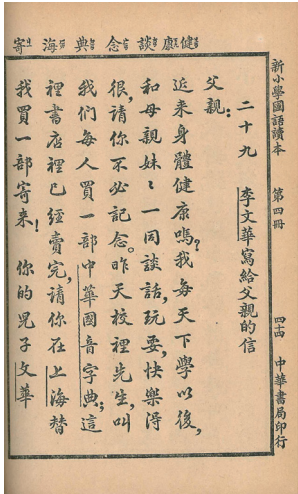 新小學國語讀本 第四冊 中華書局印行
健康談念典海寄
二十九 李文華寫給父親的信
父親:
近來身體健康嗎?我每天下學以後,
和母親妹〻一同談話,玩耍,快樂得
很,請你不必記念。昨天校裡先生,叫
我們每人買一部中華國音字典;這
裡書店裡已經賣完,請你在上海替
我買一部寄來! 你的兒子文華